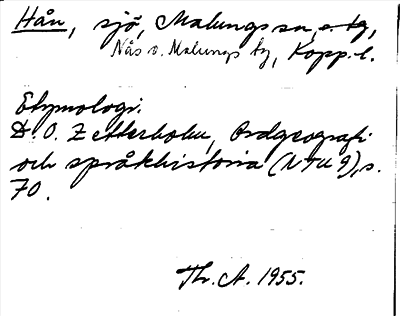 Hån, sjö, Malungs sn, o. tg,
Nås o. Malungs tg, Kopp. l.
Etymologi.
D. O. Zetterholm, Ordgeografi
och språkhistoria (NTU 9), s.
70.
Th. A. 1955.